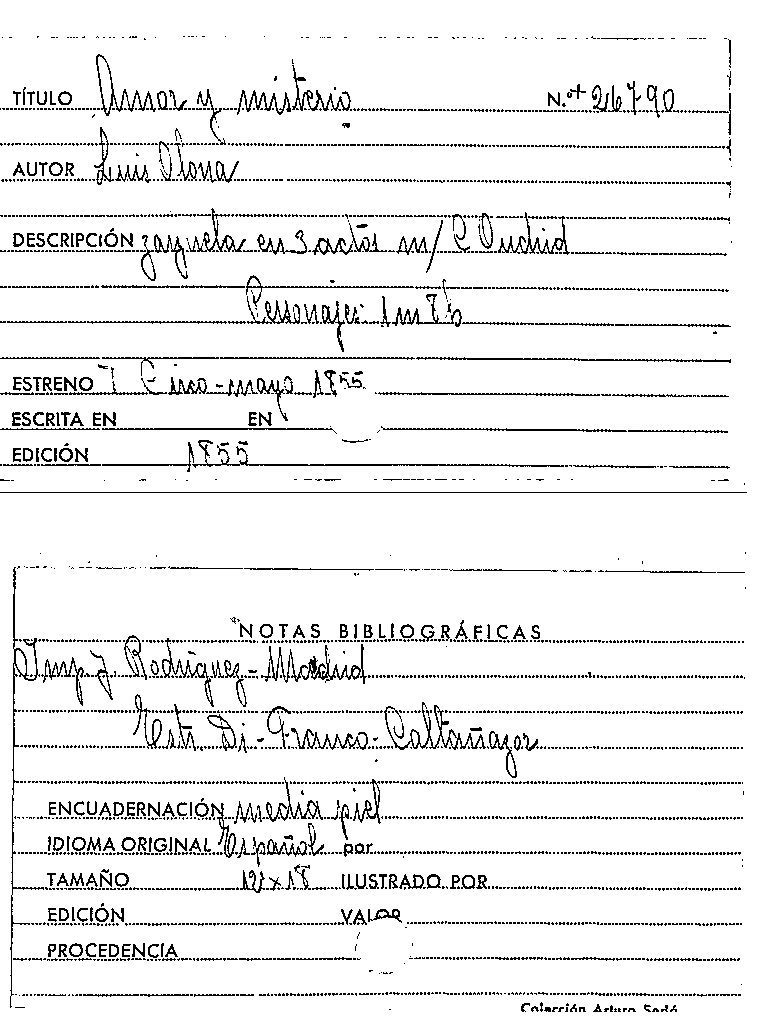 TÍTULO Amor y misterio N.º + 26790
AUTOR Luis Olona
DESCRIPCIÓN zarzuela en 3 actos m/ C Oudrid
Personajes: 1m 8h
ESTRENO T Circo-mayo 1855
ESCRITA EN EN
EDICIÓN 1855
NOTAS BIBLIOGRÁFICAS
Imp J. Rodriguez - Madrid
Estr. Di-Franco-Caltañazor
ENCUADERNACIÓN media piel
IDIOMA ORIGINAL Español por
TAMAÑO 12 x 18 ILUSTRADO POR
EDICIÓN VALOR
PROCEDENCIA
Colección Arturo Sedó